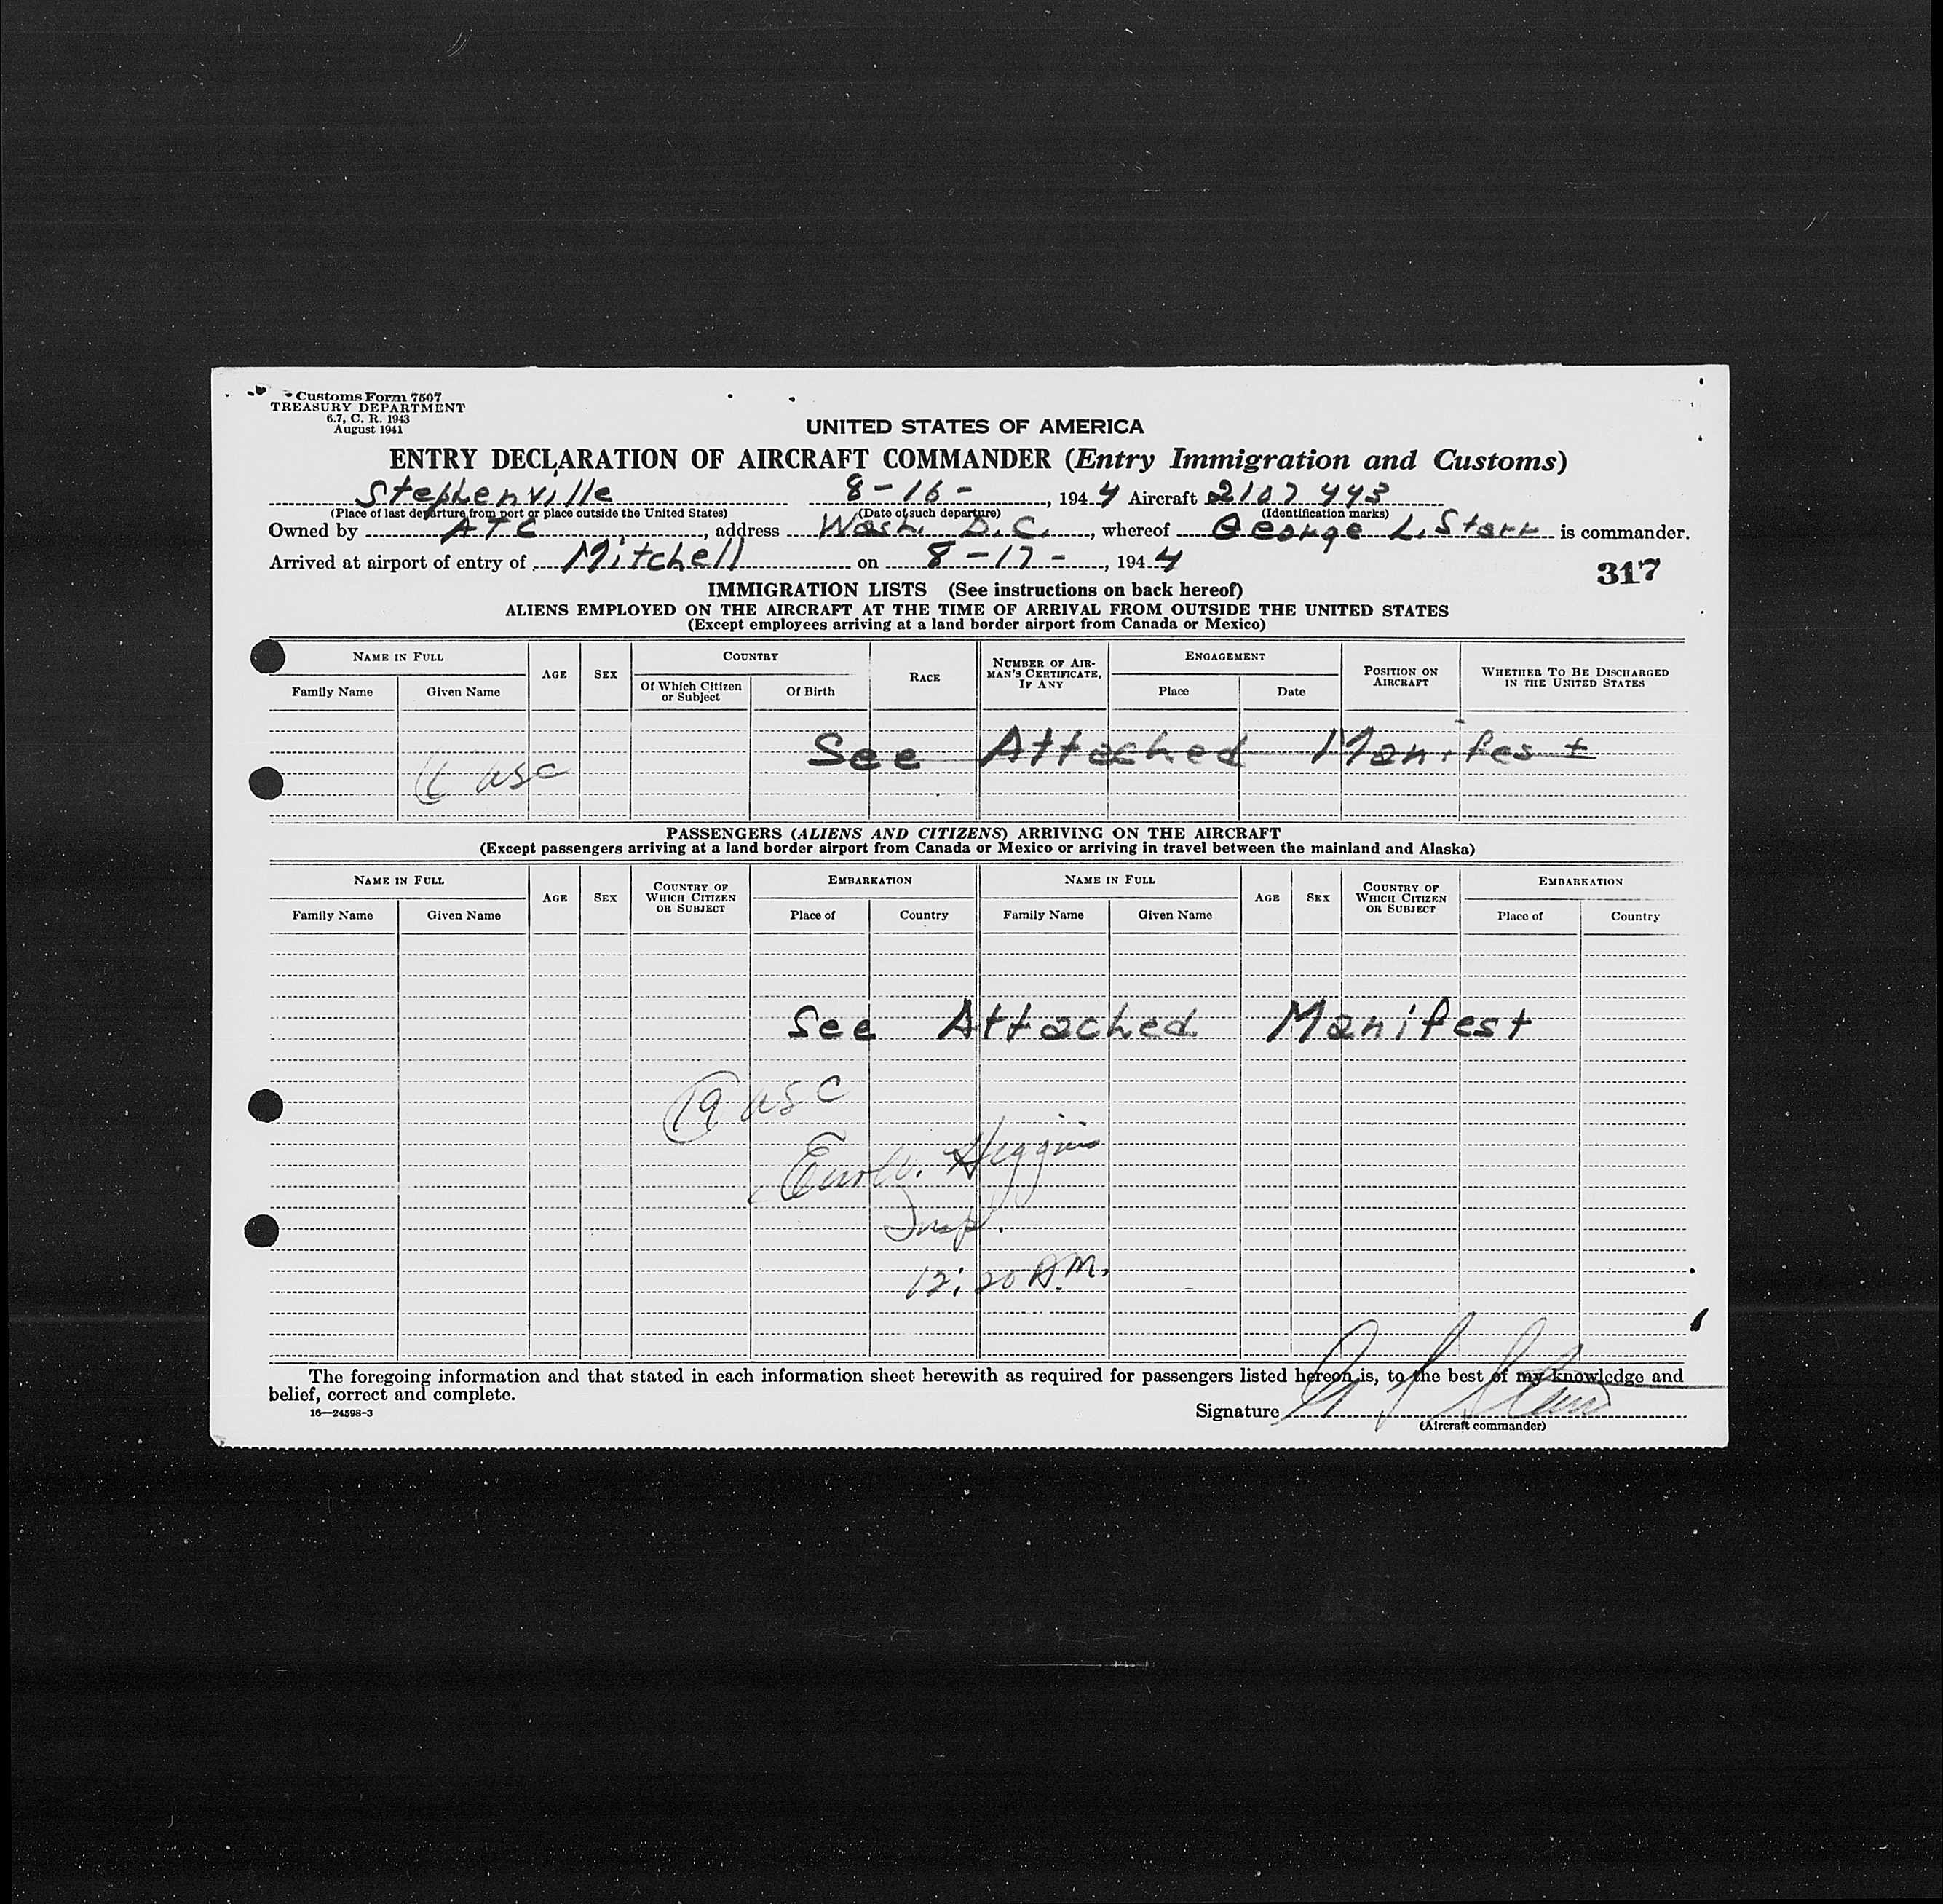 Customs Form 7507
TREASURY DEPARTMENT
6.7, C. R. 1943
August 1941
UNITED STATES OF AMERICA
ENTRY DECLARATION OF AIRCRAFT COMMANDER (Entry Immigration and Customs)
Stephenville 8-16-, 1944 Aircraft 2107443
(Place of last departure from port or place outside the United States) (Date of such departure) (Identification marks)
Owned by ATC, address Wash. D.C., whereof George L. Starr is commander.
Arrived at airport of entry of Mitchell on 8-17-, 1944
317
IMMIGRATION LISTS (See instructions on back hereof)
ALIENS EMPLOYED ON THE AIRCRAFT AT THE TIME OF ARRIVAL FROM OUTSIDE THE UNITED STATES
(Except employees arriving at a land border airport from Canada or Mexico)
NAME IN FULL AGE SEX COUNTRY RACE NUMBER OF AIRMAN'S CERTIFICATE, IF ANY ENGAGEMENT POSITION ON AIRCRAFT WHETHER TO BE DISCHARGED IN THE UNITED STATES
Family Name Given Name Of Which Citizen or Subject Of Birth Place Date
See Attached Manifest
USC
PASSENGERS (ALIENS AND CITIZENS) ARRIVING ON THE AIRCRAFT
(Except passengers arriving at a land border airport from Canada or Mexico or arriving in travel between the mainland and Alaska)
NAME IN FULL AGE SEX COUNTRY OF WHICH CITIZEN OR SUBJECT EMBARKATION NAME IN FULL AGE SEX COUNTRY OF WHICH CITIZEN OR SUBJECT EMBARKATION
Family Name Given Name Place of Country Family Name Given Name Place of Country
See Attached Manifest
19 USC
Higgins
Insp.
12:20 A.M.
The foregoing information and that stated in each information sheet herewith as required for passengers listed hereon is, to the best of my knowledge and
belief, correct and complete.
16—24598-3
Signature G L Starr
(Aircraft commander)